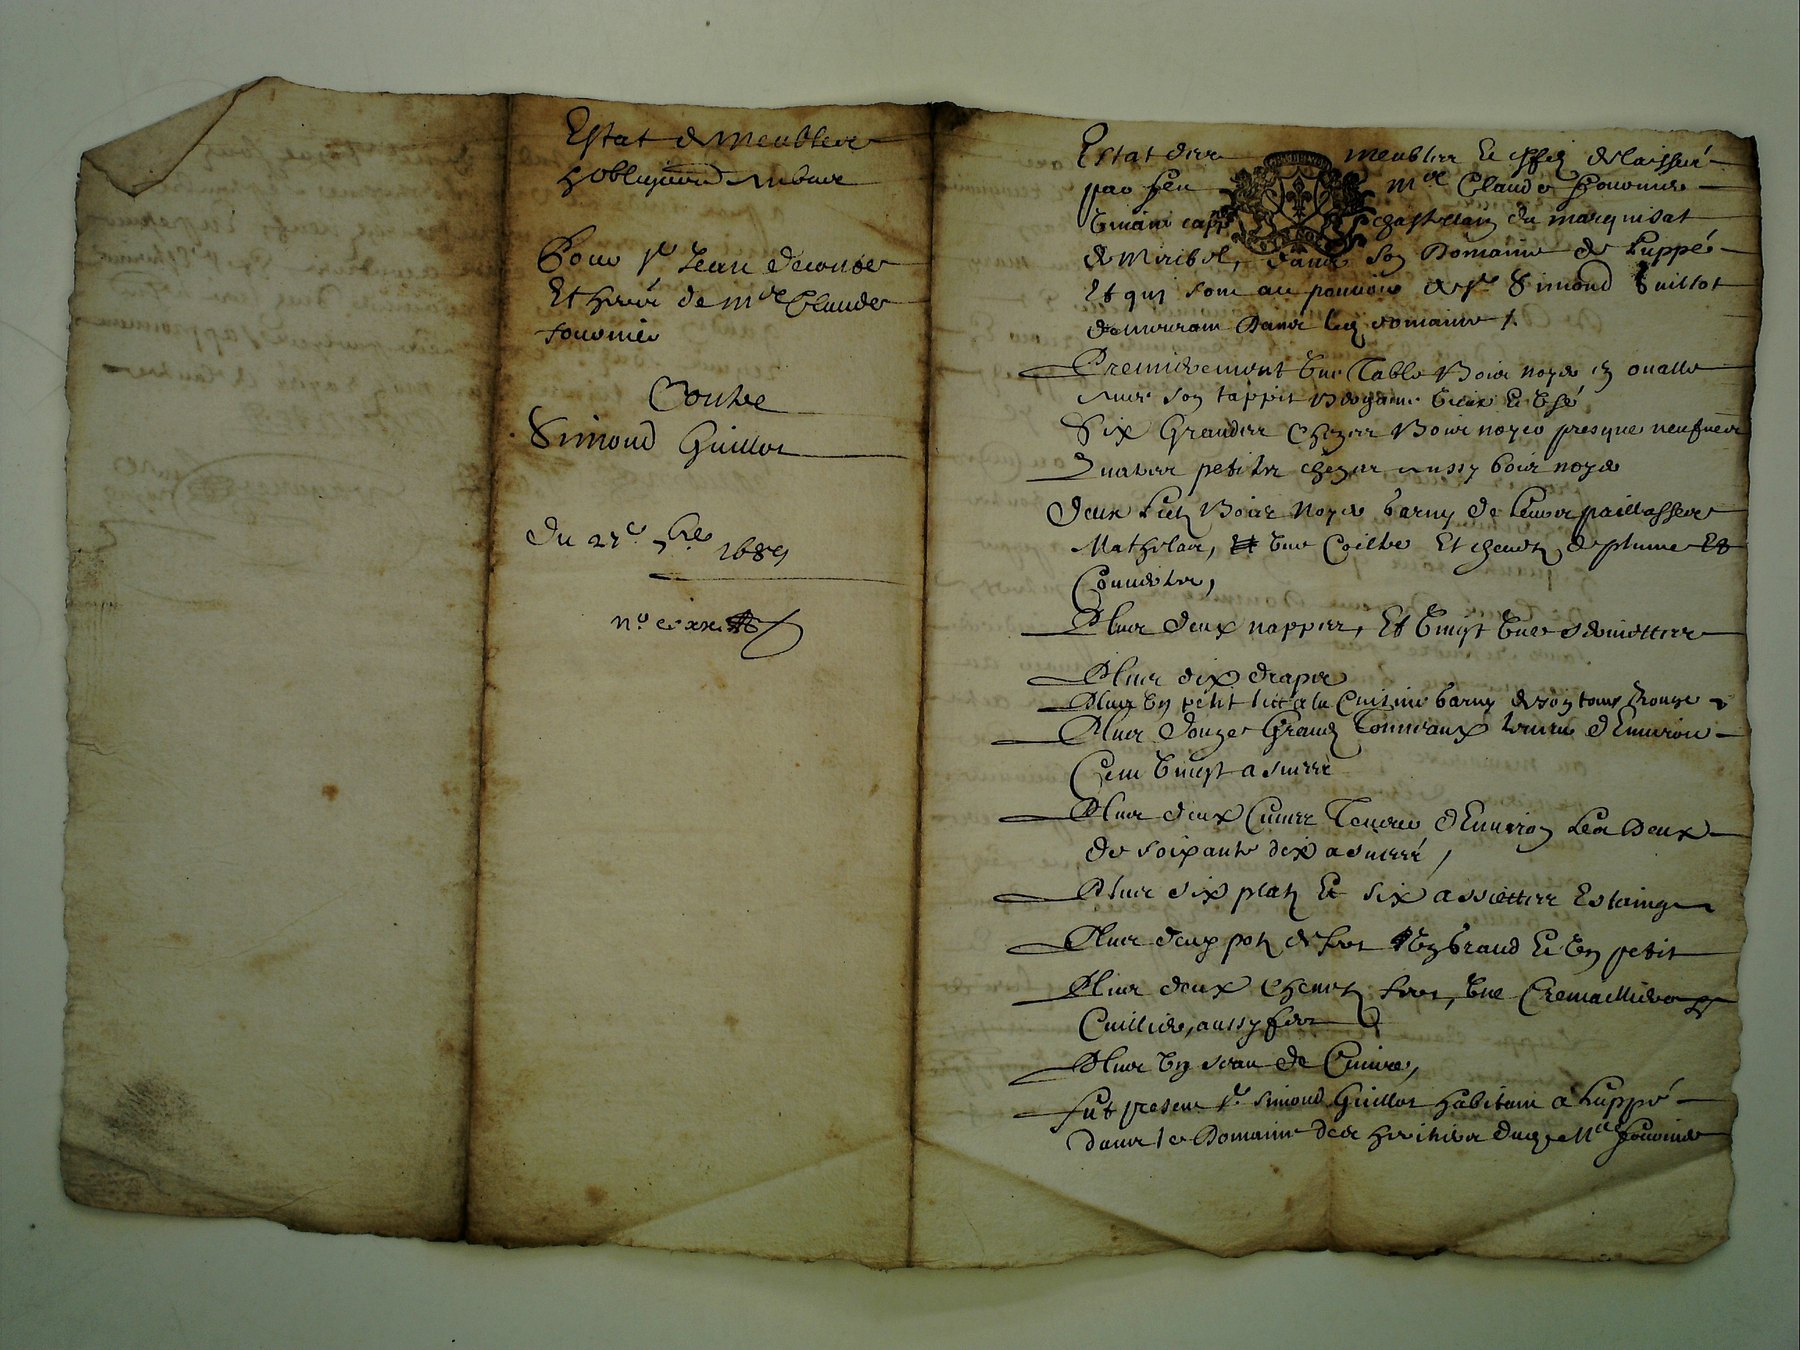 Estat de meubles
Pour Sr Jean
Et herit de mre Claude
fournier
Contre
Simond Guillot
Du 27e 7bre 1689
Estat des meubles et effez delaissés
par feu mre Claude fournier
chastelain du marquisat
de Miribel, dans son Domaine de Luppé
Et qui sont au pouvoir de Sr Simond Guillot
demeurant dans led domaine /.
Premierement une Table Bois noyer en ovalle
avec son tappit Bergame vieux et usé
Six Grandes Chezes Bois noyer presque neufves
Quatre petites chezes aussy bois noyer
Deux Lictz Bois Noyer garny de leurs paillasses
Mathelas, une Coiltre Et chevetz de plume Et
Couvertes,
Plus deux nappes, Et vingt une serviettes
Plus dix draps
Plus un petit lict a la Cuisine garny de son tour Rouge
Plus douze Grandz Tonneaux tenant d'Environ
Cent vingt asnees
Plus deux Cuves Tenant d'Environ Les Deux
de soixante dix asnees,
Plus six platz Et six assiettes Estaing
Plus deux potz de fer un grand Et un petit
Plus deux Chenetz fer, une Cremailliere
Cuilliere, aussy fer
Plus un seau de Cuivre,
fut present Sr Simond Guillot habitant a Luppé
dans le Domaine des heritiers dud Mre fournier